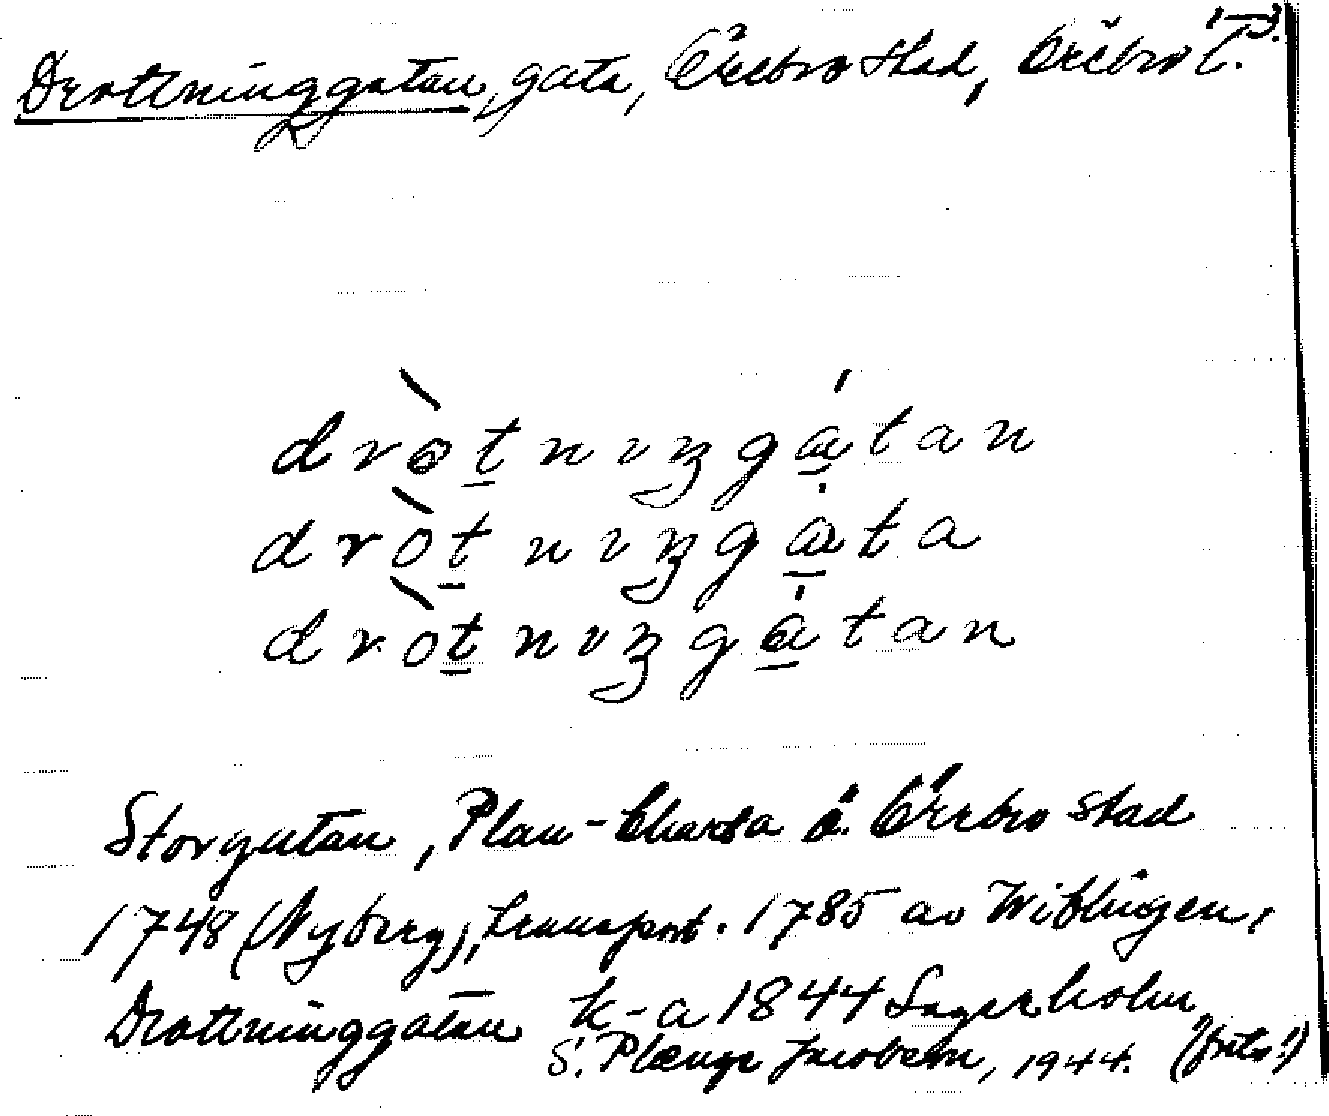 Drottninggatan, gata, Örebro stad, Örebro l.
dròtnɩŋgátan
dròtnɩŋgáta
dròtnɩŋgátan
Storgatan, Plan-Charta ö. Örebro stad
1748 (Nyberg), transport. 1785 av Wiblingen,
Drottninggatan k-a 1844 Lagerholm
S. Plenge Jacobsen, 1944.